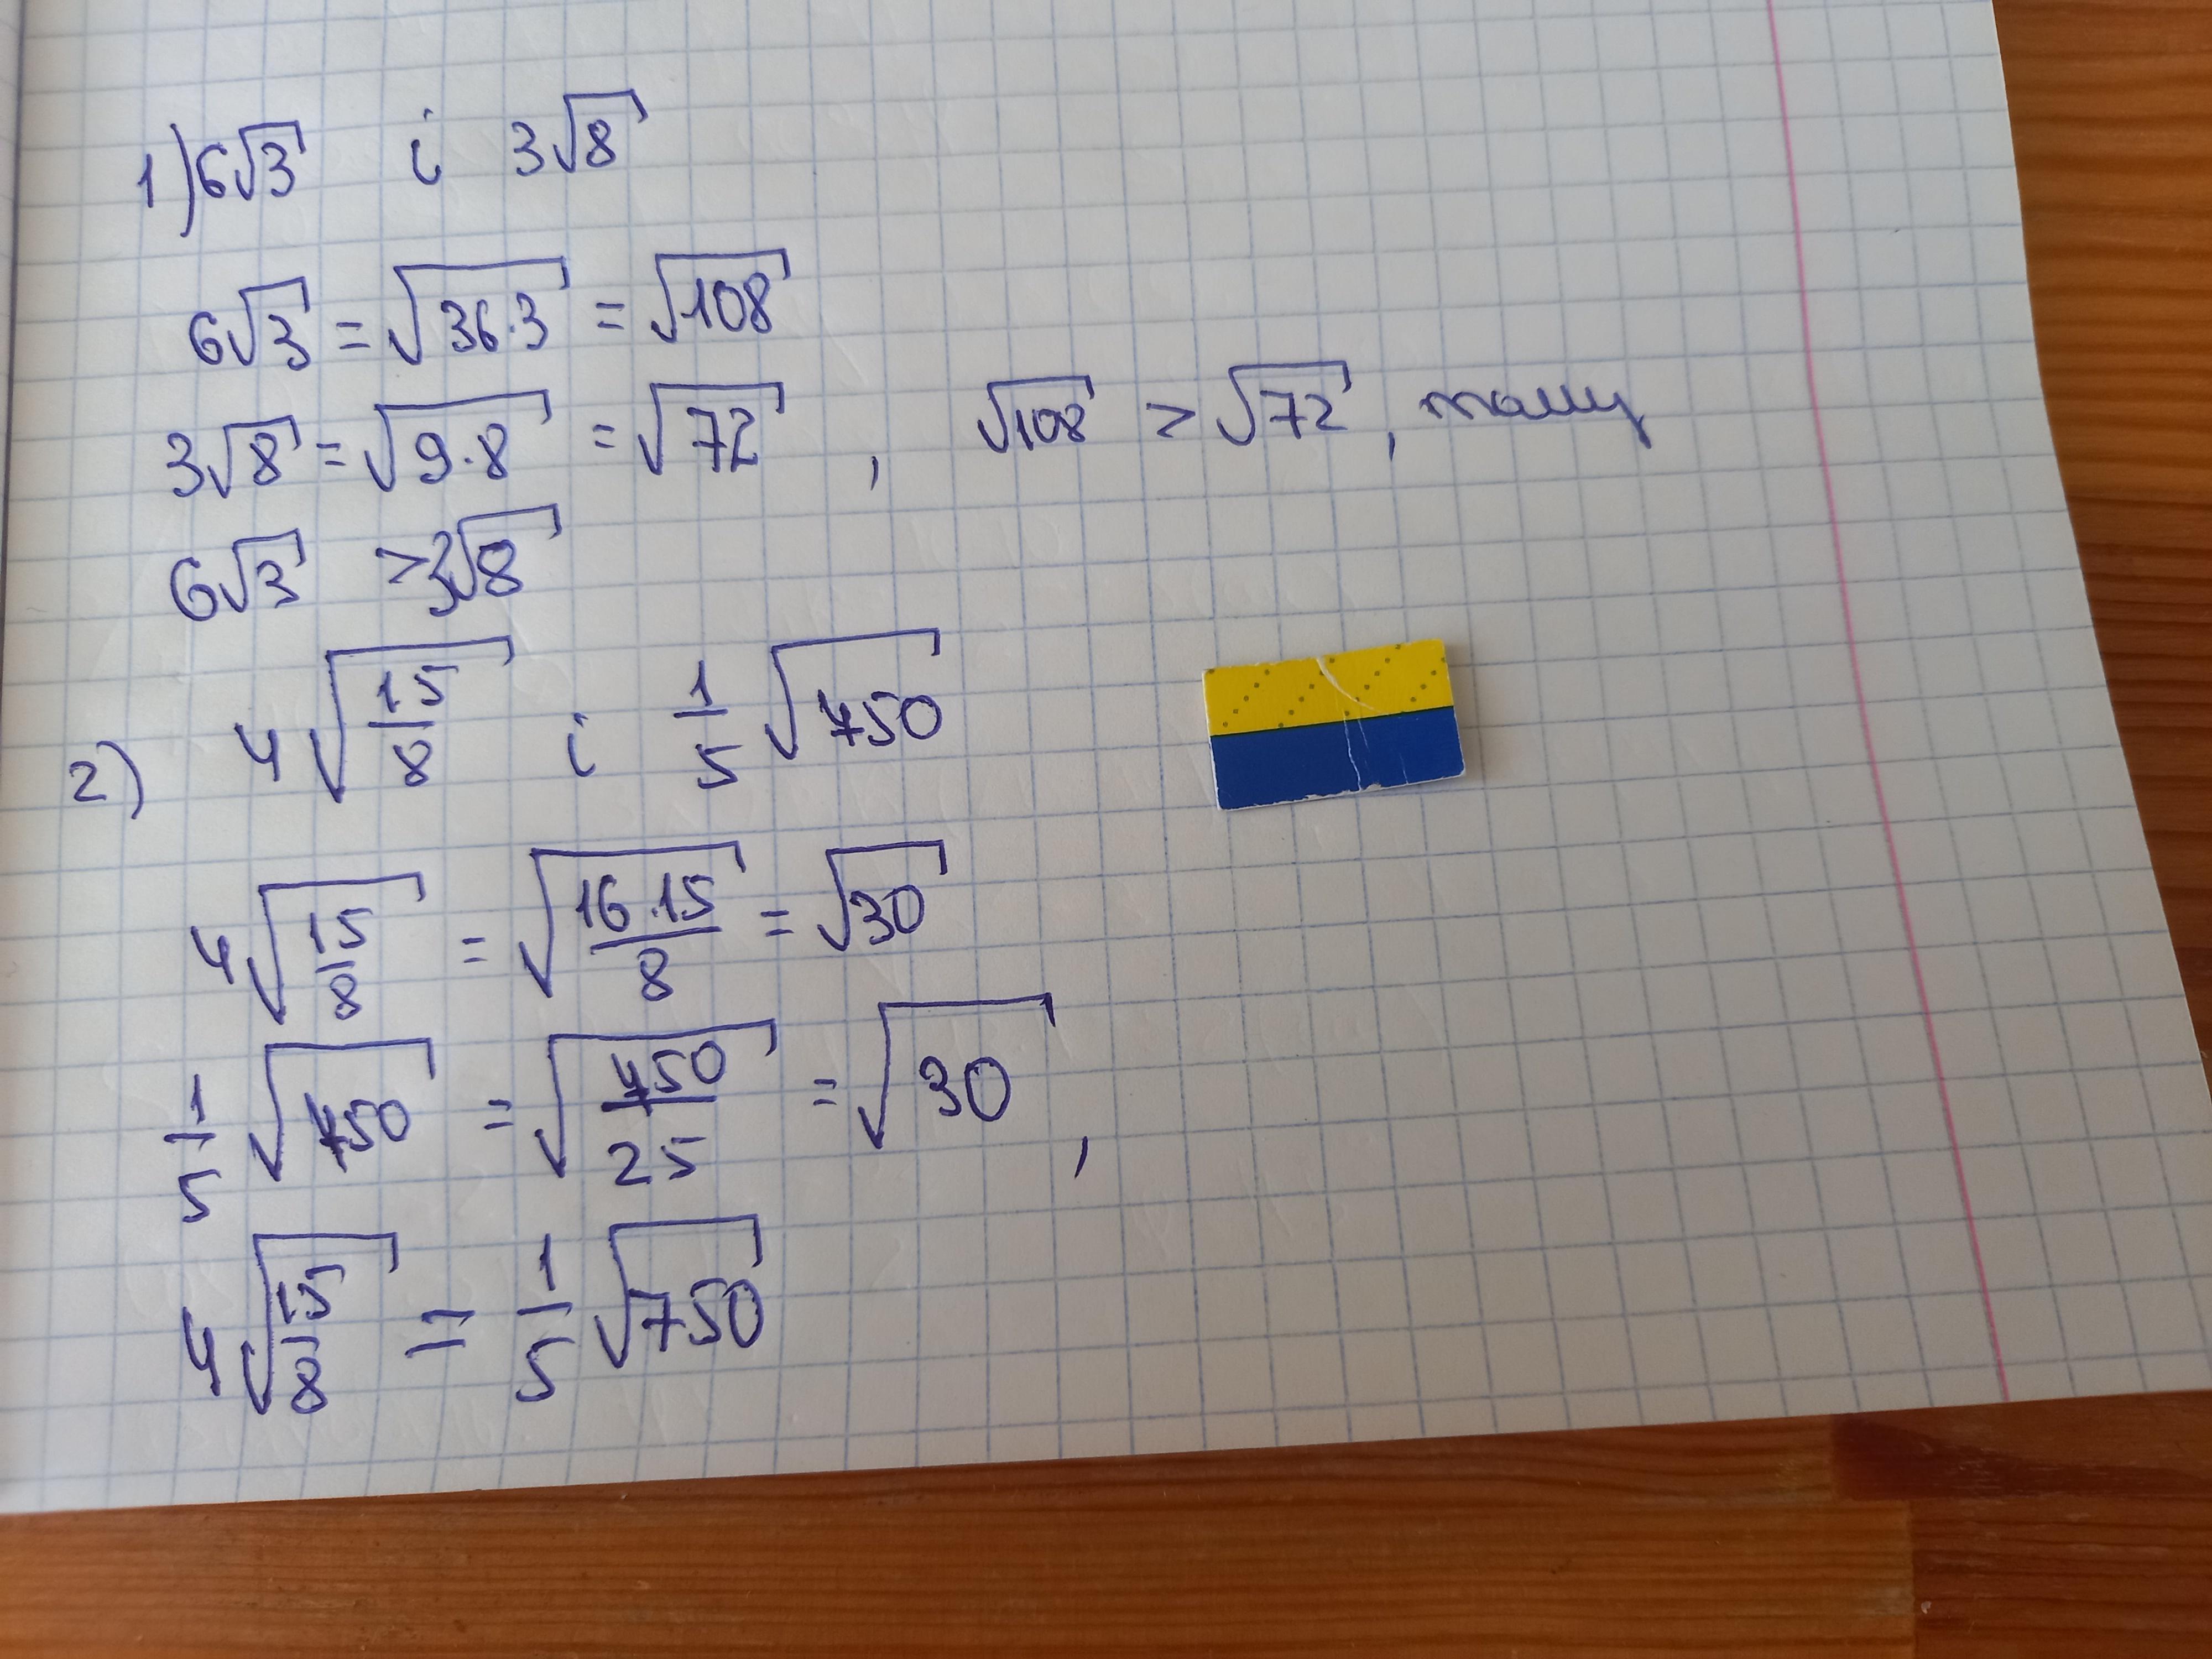 1) 6√3 і 3√8
6√3 = √36·3 = √108
3√8 = √9·8 = √72 , √108 > √72, тому
6√3 > 3√8
2) 4√15/8 і 1/5√750
4√15/8 = √16·15/8 = √30
1/5√750 = √750/25 = √30 ,
4√15/8 = 1/5√750